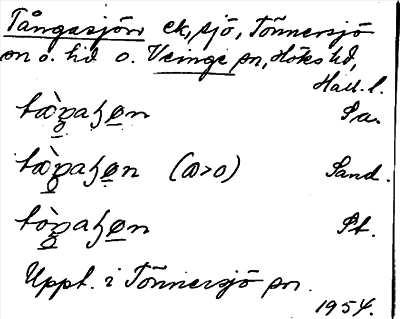 Tångasjön ek, sjö, Tönnersjö
sn o. hd o. Veinge sn, Höks hd,
Hall. l.
tàŋaɧøn Sa.
tàŋaɧøn (a>o) Sand.
tòŋaɧøn St.
Uppt. i Tönnersjö sn.
1954.